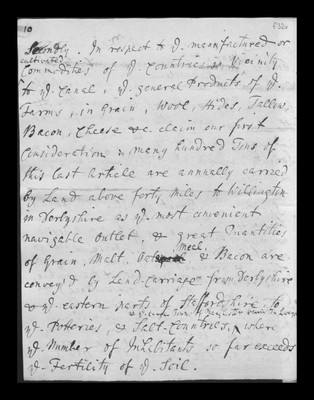 10
Secondly. In respect to yͤ. manufactured or
cultivated
Commodities of yͤ Countries in Vicinity
to yͤ Canal, yͤ. general Products of yͤ
Farms, in Grain, Wool, Hides, Tallow,
Bacon, Cheese &c. claim our first
Consideration: many hundred Tons of
this last Article are annually carried
by Land above forty miles to Willington
in Derbyshire as yͤ. most convenient
navigable outlet, & great Quantities
of Grain, Malt, Meal, & Bacon are
convey'd by Land-carriage from Derbyshire
& yͤ eastern parts of Staffordshire to
yͤ. Potteries, & Salt-Countries, where
yͤ. Number of Inhabitants so far exceeds
yͤ. Fertility of yͤ Soil.